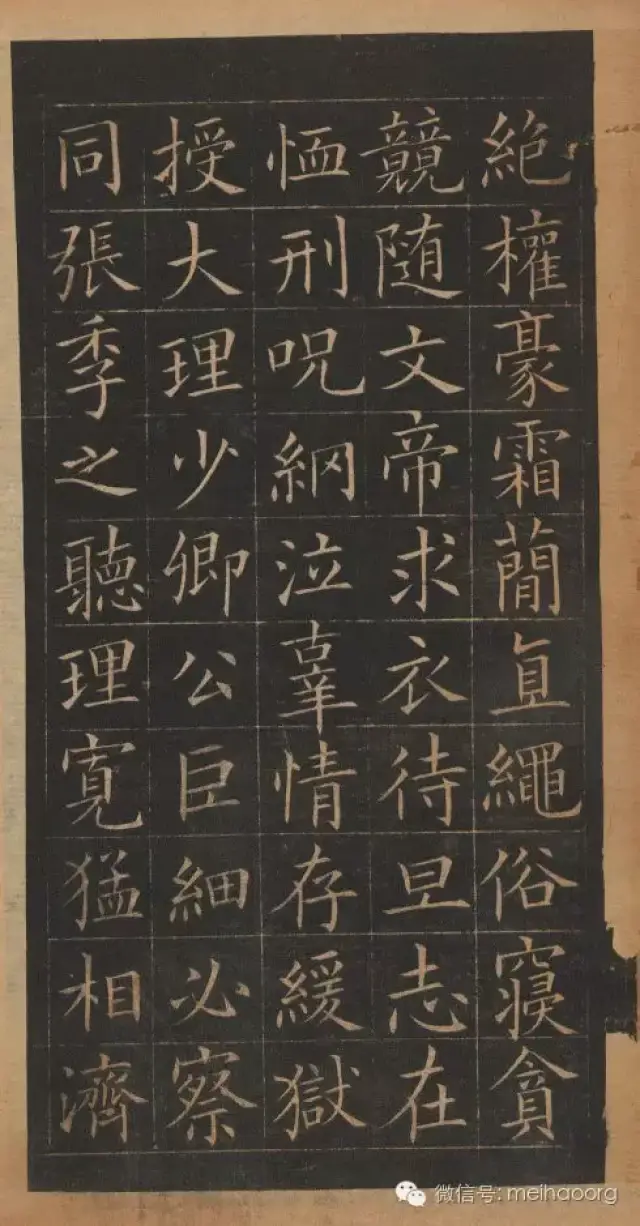 絶權豪霜蕳直繩俗寢貪
競隨文帝求衣待旦志在
恤刑咒網泣辜情存緩獄
授大理少卿公巨細必察
同張季之聽理寬猛相濟
微信号: meihaoorg